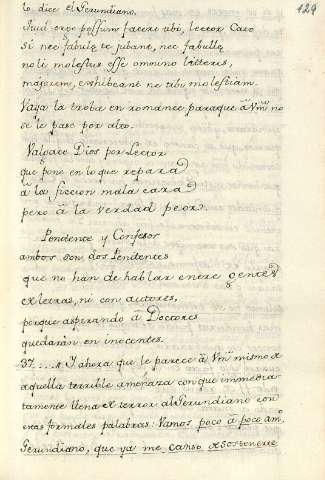 lo dice el Gerundiano.
129
Quid ergo possum facere tibi, lector Caro
si nec fabulę te jubant, nec fabullę
noli molestus esse omnino litteris,
majorem, exhibeant ne tibi molestiam.
Vaya la troba en romance paraque â Vmd no
se le pase por alto.
Valgate Dios por Lector
que pone en lo que repara
â la ficcion mala cara
pero â la verdad peor.
Penitente y Confesor
ambos son dos Penitentes
que no han de hablar entre gentes
de letras, ni con autores,
porque aspirando â Doctores
quedarán en inocentes.
37..... Y ahora que le parece â Vmd mismo de
aquella terrible amenaza con que immedia-
tamente llena de terror al Gerundiano con
estas formales palabras: Vamos poco â poco amo
Gerundiano, que ya me canso de sostenerte